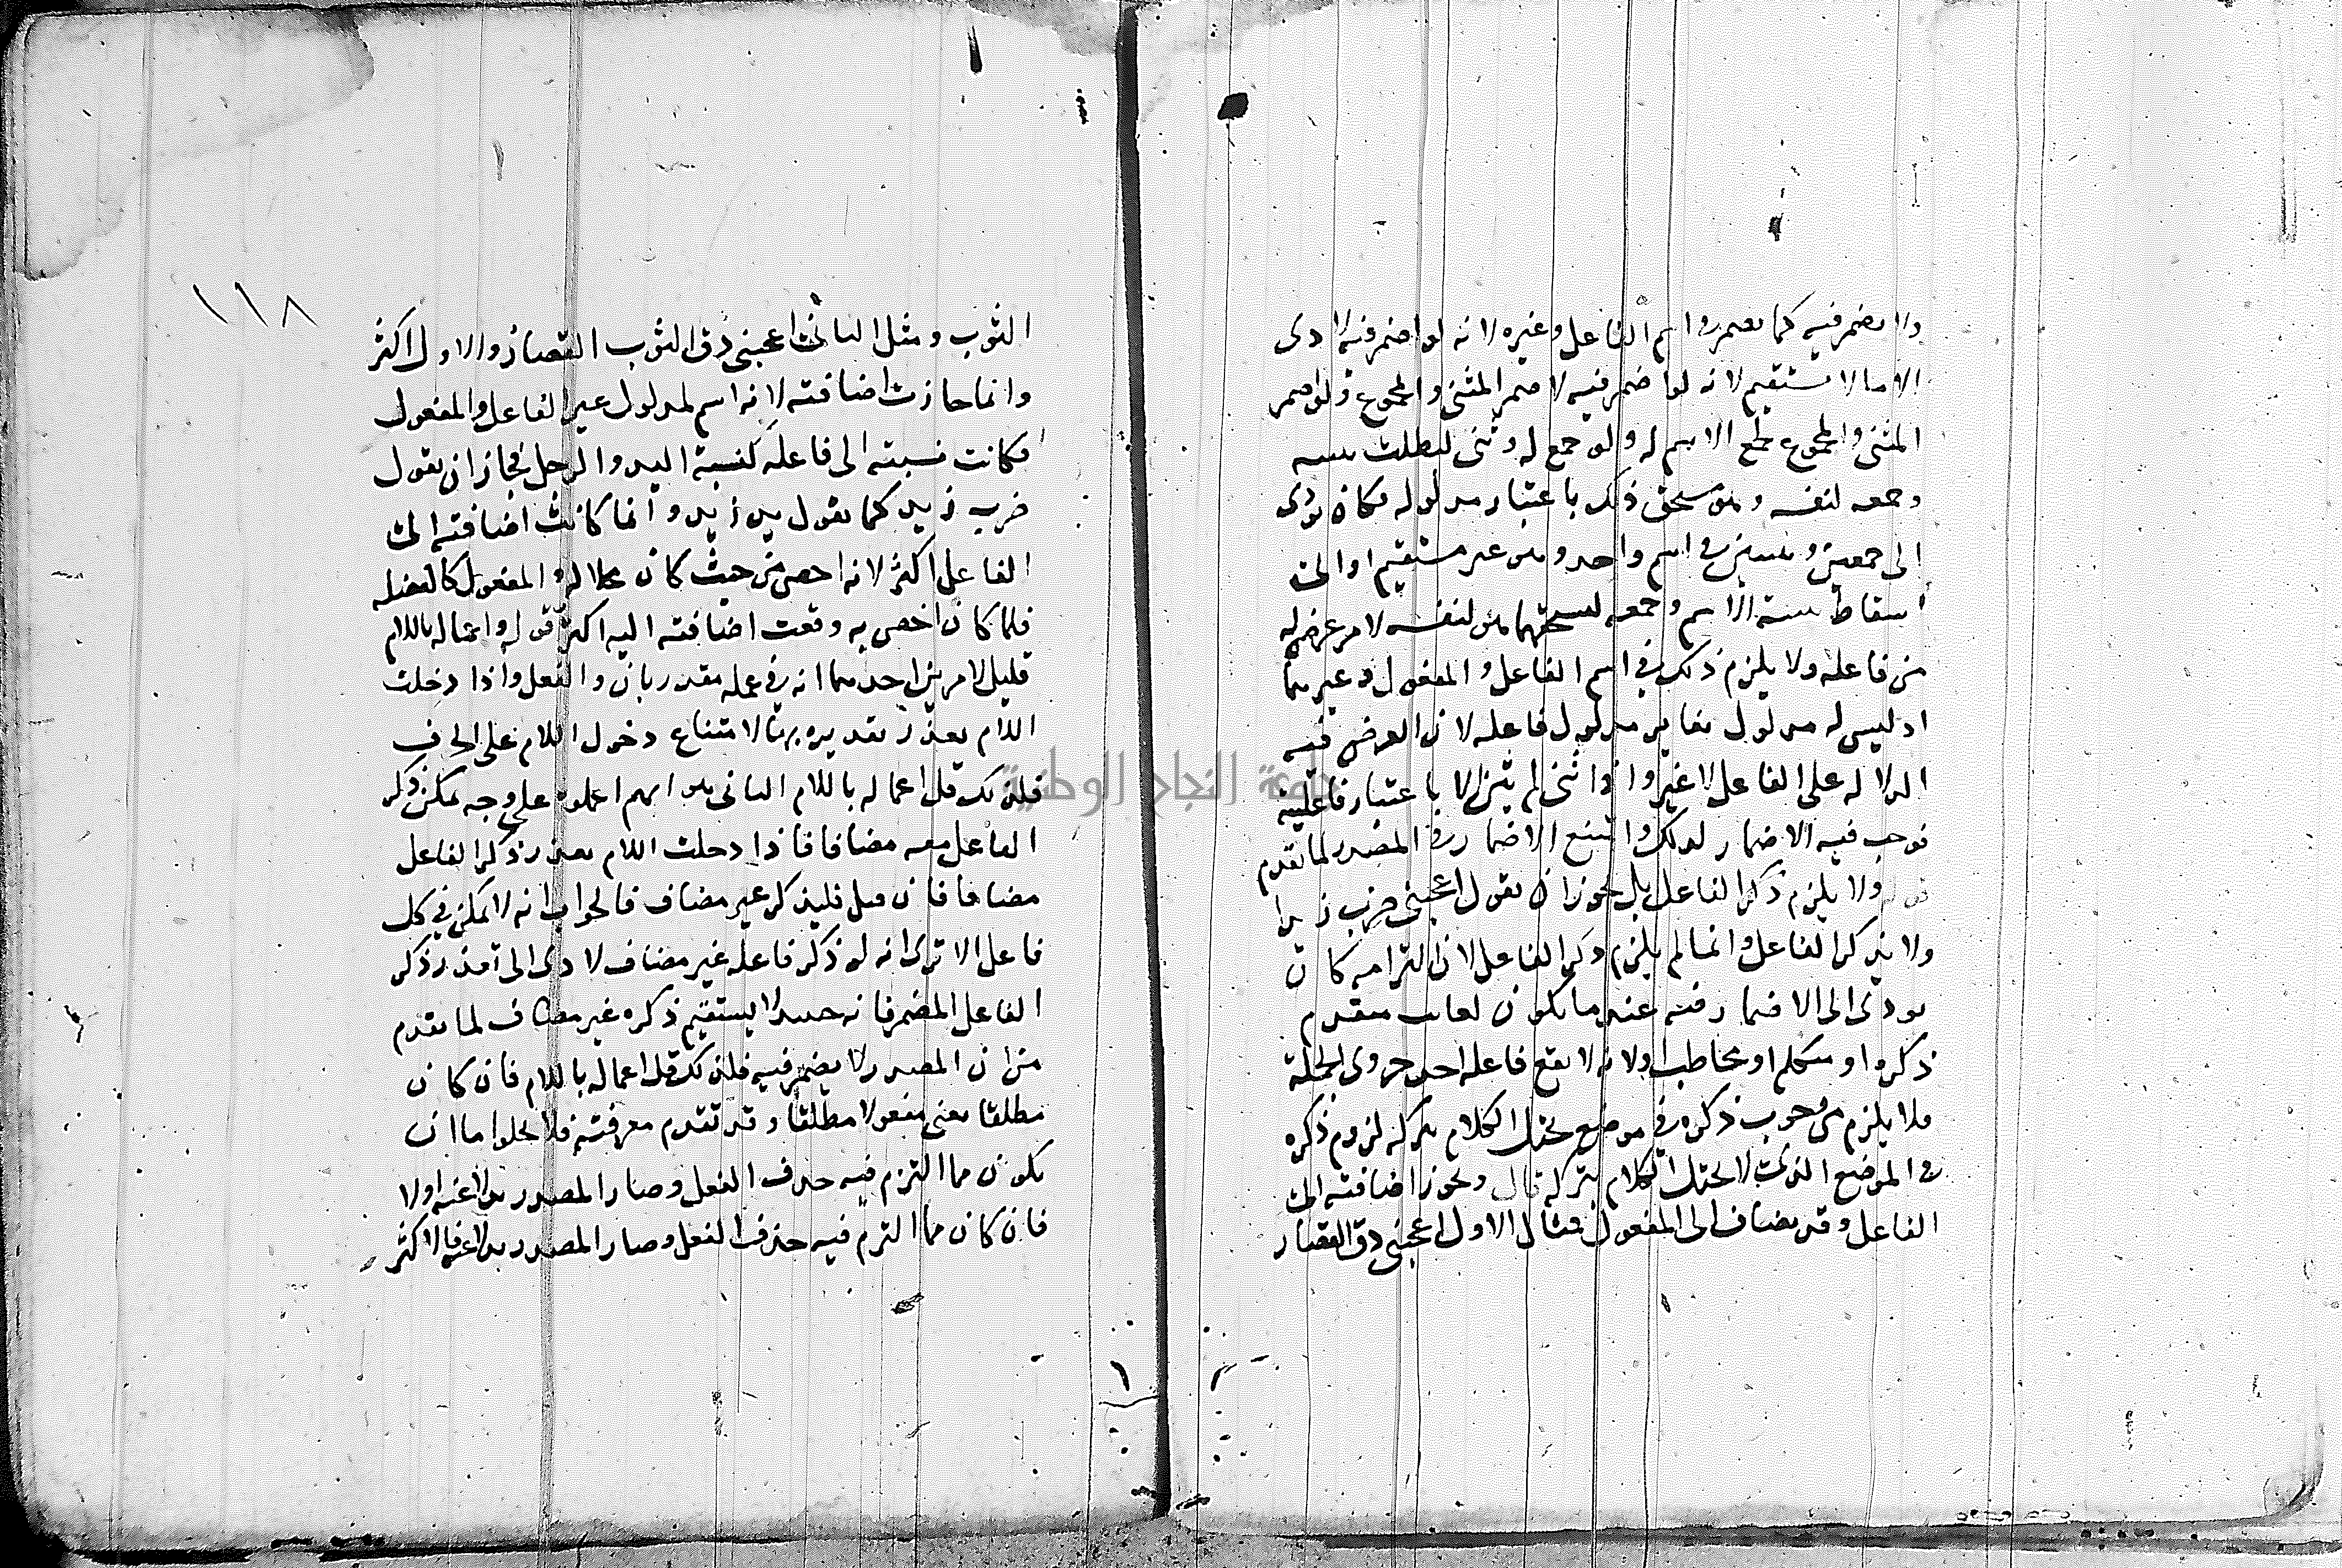 ولا يضمر فيه كما يضمر في اسم الفاعل وغيره لانه لو اضمر فيه لادى
الى ما لا يستقيم لانه لو اضمر فيه لاضمر المثنى والمجموع ولو اضمر
المثنى والمجموع لجمع الاسم له ولو جمع له وثنى لبطلت تثنيته
وجمعه لنفسه وهو يستحق ذلك باعتبار مدلوله فكان يودى
الى جمعين وتثنيتين في اسم واحد وهو غير مستقيم او الى
اسقاط تثنية الاسم وجمعه لنفسه لامر عرض له
من فاعله ولا يلزم ذلك في اسم الفاعل والمفعول وغيرهما
اذ ليس له مدلول يغاير مدلول فاعله لان الغرض فيه
الدلالة على الفاعل لا غير واذا ثنى لم يثن الا باعتبار فاعليه
فوجب فيه الاضمار لذلك وامتنع الاضمار في المصدر لما تقدم
قوله ولا يلزم ذكر الفاعل بل يجوز ان تقول اعجبني ضرب زيدا
ولا يذكر الفاعل وانما لم يلزم ذكر الفاعل لان التزامه كان
يودى الى الاضمار فيه عندما يكون لغائب متقدم
ذكره او متكلم او مخاطب ولانه لا يقع فاعله احد جزوى الجملة
فلا يلزم من وجوب ذكره في موضع يختل الكلام بتركه لزوم ذكره
في الموضع الذى لا يختل الكلام بتركه قال ويجوز اضافته الى
الفاعل وقد يضاف الى المفعول فمثال الاول اعجبني دق القصار
١١٨
الثوب ومثل الثاني اعجبني دق الثوب القصار والاول اكثر
وانما جازت اضافته لانه اسم لمدلول غير الفاعل والمفعول
فكانت نسبته الى فاعله كنسبة اليد والرجل فجاز ان يقول
ضرب زيد كما تقول يد زيد وانما كانت اضافته الى
الفاعل اكثر لانه اخص من حيث كان محلا له والمفعول كالفضله
فلما كان اخص به وقعت اضافته اليه اكثر قوله واعماله باللام
قليل لامرين احدهما انه في عمله مقدر بان والفعل واذا دخلت
اللام يعذر تقديره بها لامتناع دخول اللام على الحرف
فلذلك قل اعماله باللام الثاني هو انهم اعملوه على وجه يمكن ذكر
الفاعل معه مضافا فاذا دخلت اللام تعذر ذكر الفاعل
مضافا فان قيل فليذكر غير مضاف فالجواب انه لا يمكن في كل
فاعل الا ترى انه لو ذكر فاعله غير مضاف لادى الى تعذر ذكر
الفاعل المضمر فانه حينئذ لا يستقيم ذكره غير مضاف لما تقدم
من ان المصدر لا يضمر فيه فلذلك قل اعماله باللام فان كان
مطلقا يعنى مفعولا مطلقا وقد تقدم معرفته فلا يخلوا اما ان
يكون مما التزم فيه حذف الفعل وصار المصدر بدلا عنه اولا
فان كان مما التزم فيه حذف الفعل وصار المصدر بدلا عنه فالاكثر
جامعة النجاح الوطنية